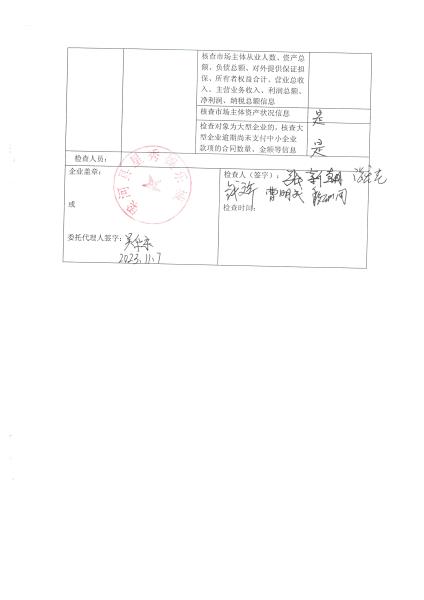 核查市场主体从业人数、资产总
额、负债总额、对外提供保证担
保、所有者权益合计、营业总收
入、主营业务收入、利润总额、
净利润、纳税总额信息
核查市场主体资产状况信息
是
检查对象为大型企业的，核查大
型企业逾期尚未支付中小企业
款项的合同数量、金额等信息
是
检查人员：
企业盖章：
检查人（签字）：
曹明
或
检查时间：
委托代理人签字：
2023.11.7